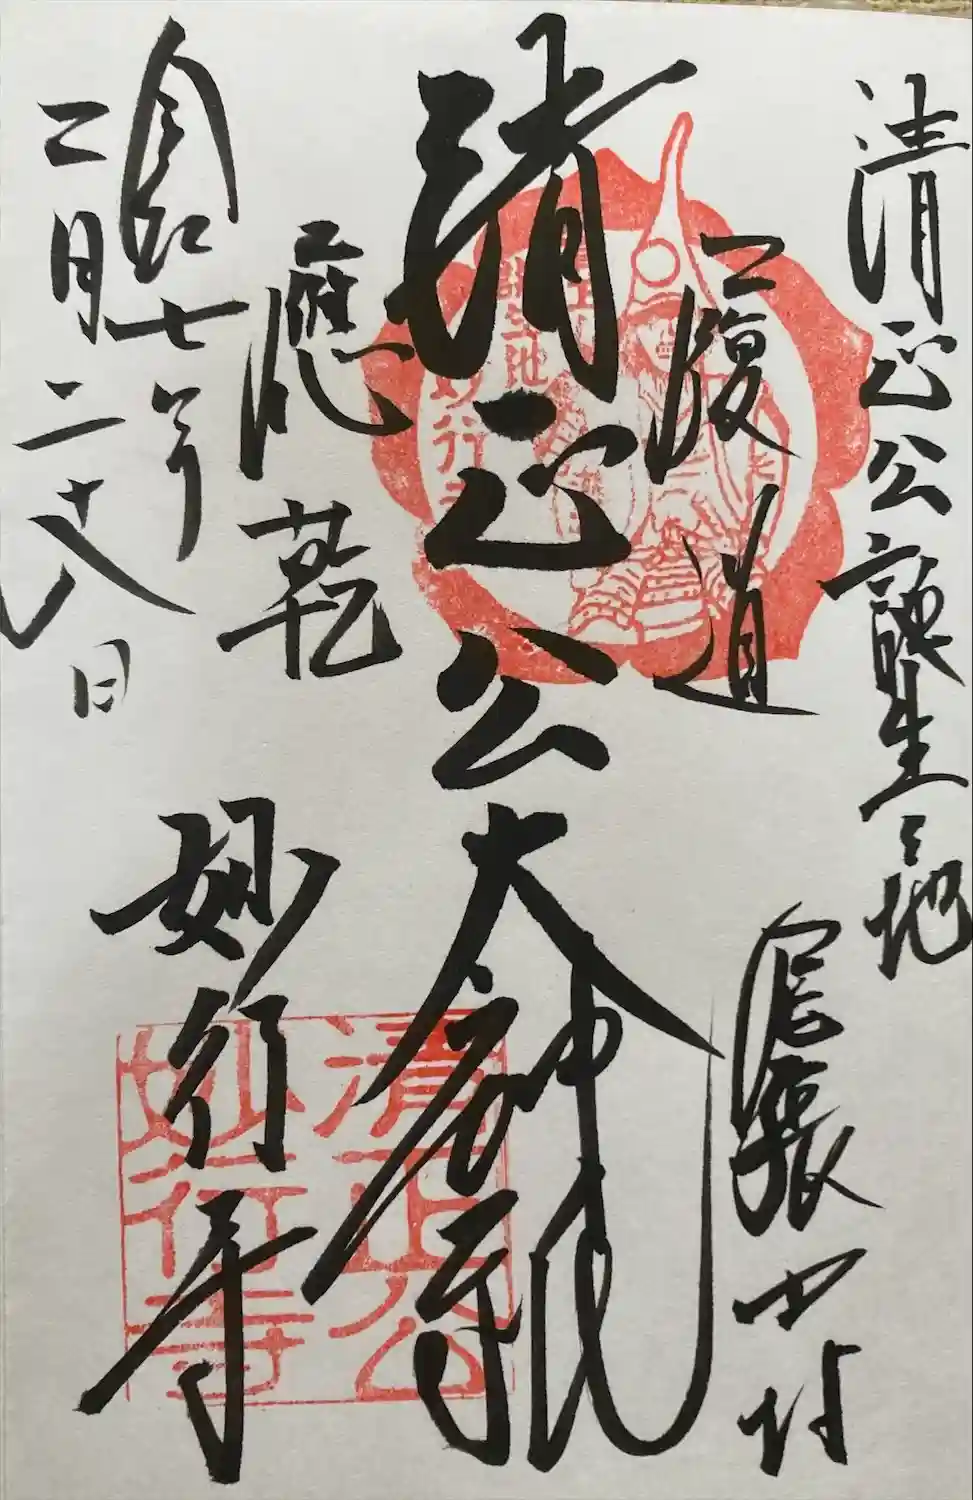 清正公誕生之地
尾張中村
履道
清正公大神祇
應乾
妙行寺
令和七年
二月二十八日
誕生地
妙行寺
清正公
妙行寺